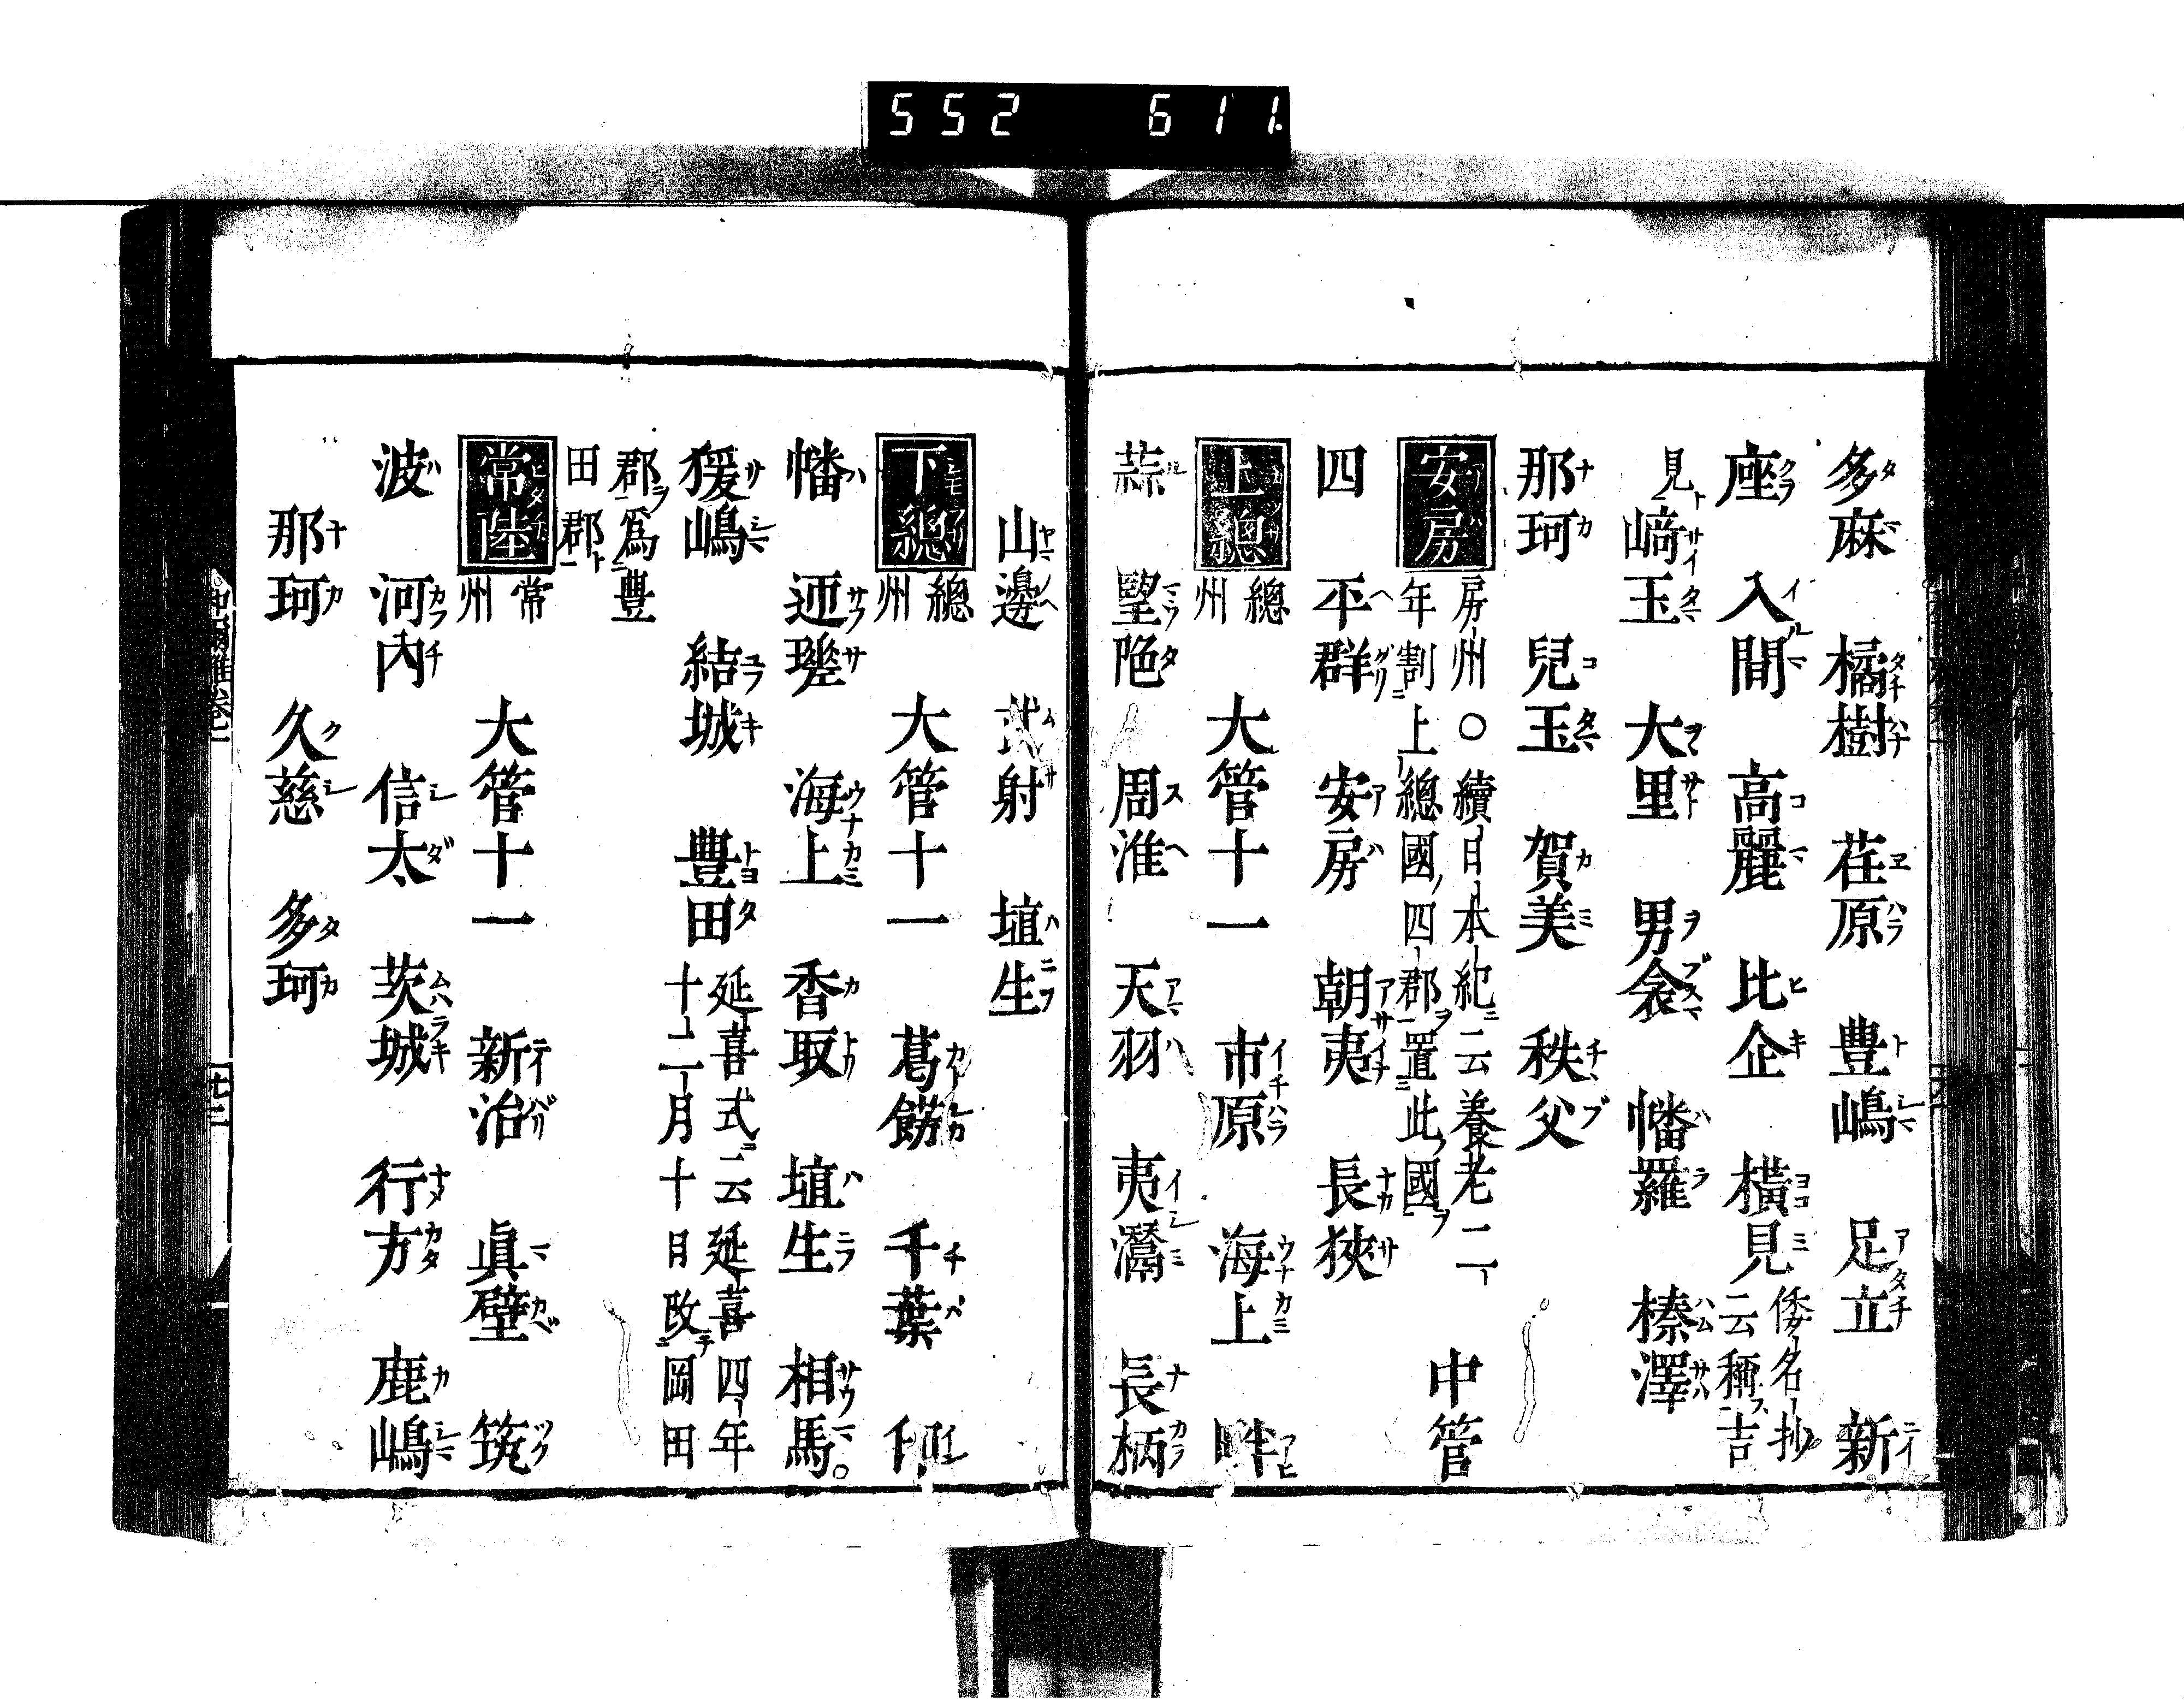 552 611.
多麻 橘樹 荏原 豊嶋 足立 新
座 入間 高麗 比企 横見 倭名抄云稱吉
見 﨑玉 大里 男衾 幡羅 榛澤
那珂 兒玉 賀美 秩父
安房 房州〇續日本紀云養老二年割上總國四郡置此國 中管
四 平群 安房 朝夷 長狹
上總 總州 大管十一 市原 海上 畔
蒜 望陁 周淮 天羽 夷灊 長柄
山邊 武射 埴生
下總 總州 大管十一 葛餝 千葉 印
幡 迊瑳 海上 香取 埴生 相馬。
猨嶋 結城 豊田 延喜式云延喜四年十二月十日改岡田
郡爲豊田郡
常陸 常州 大管十一 新治 眞壁 筑
波 河内 信太 茨城 行方 鹿嶋
那珂 久慈 多珂